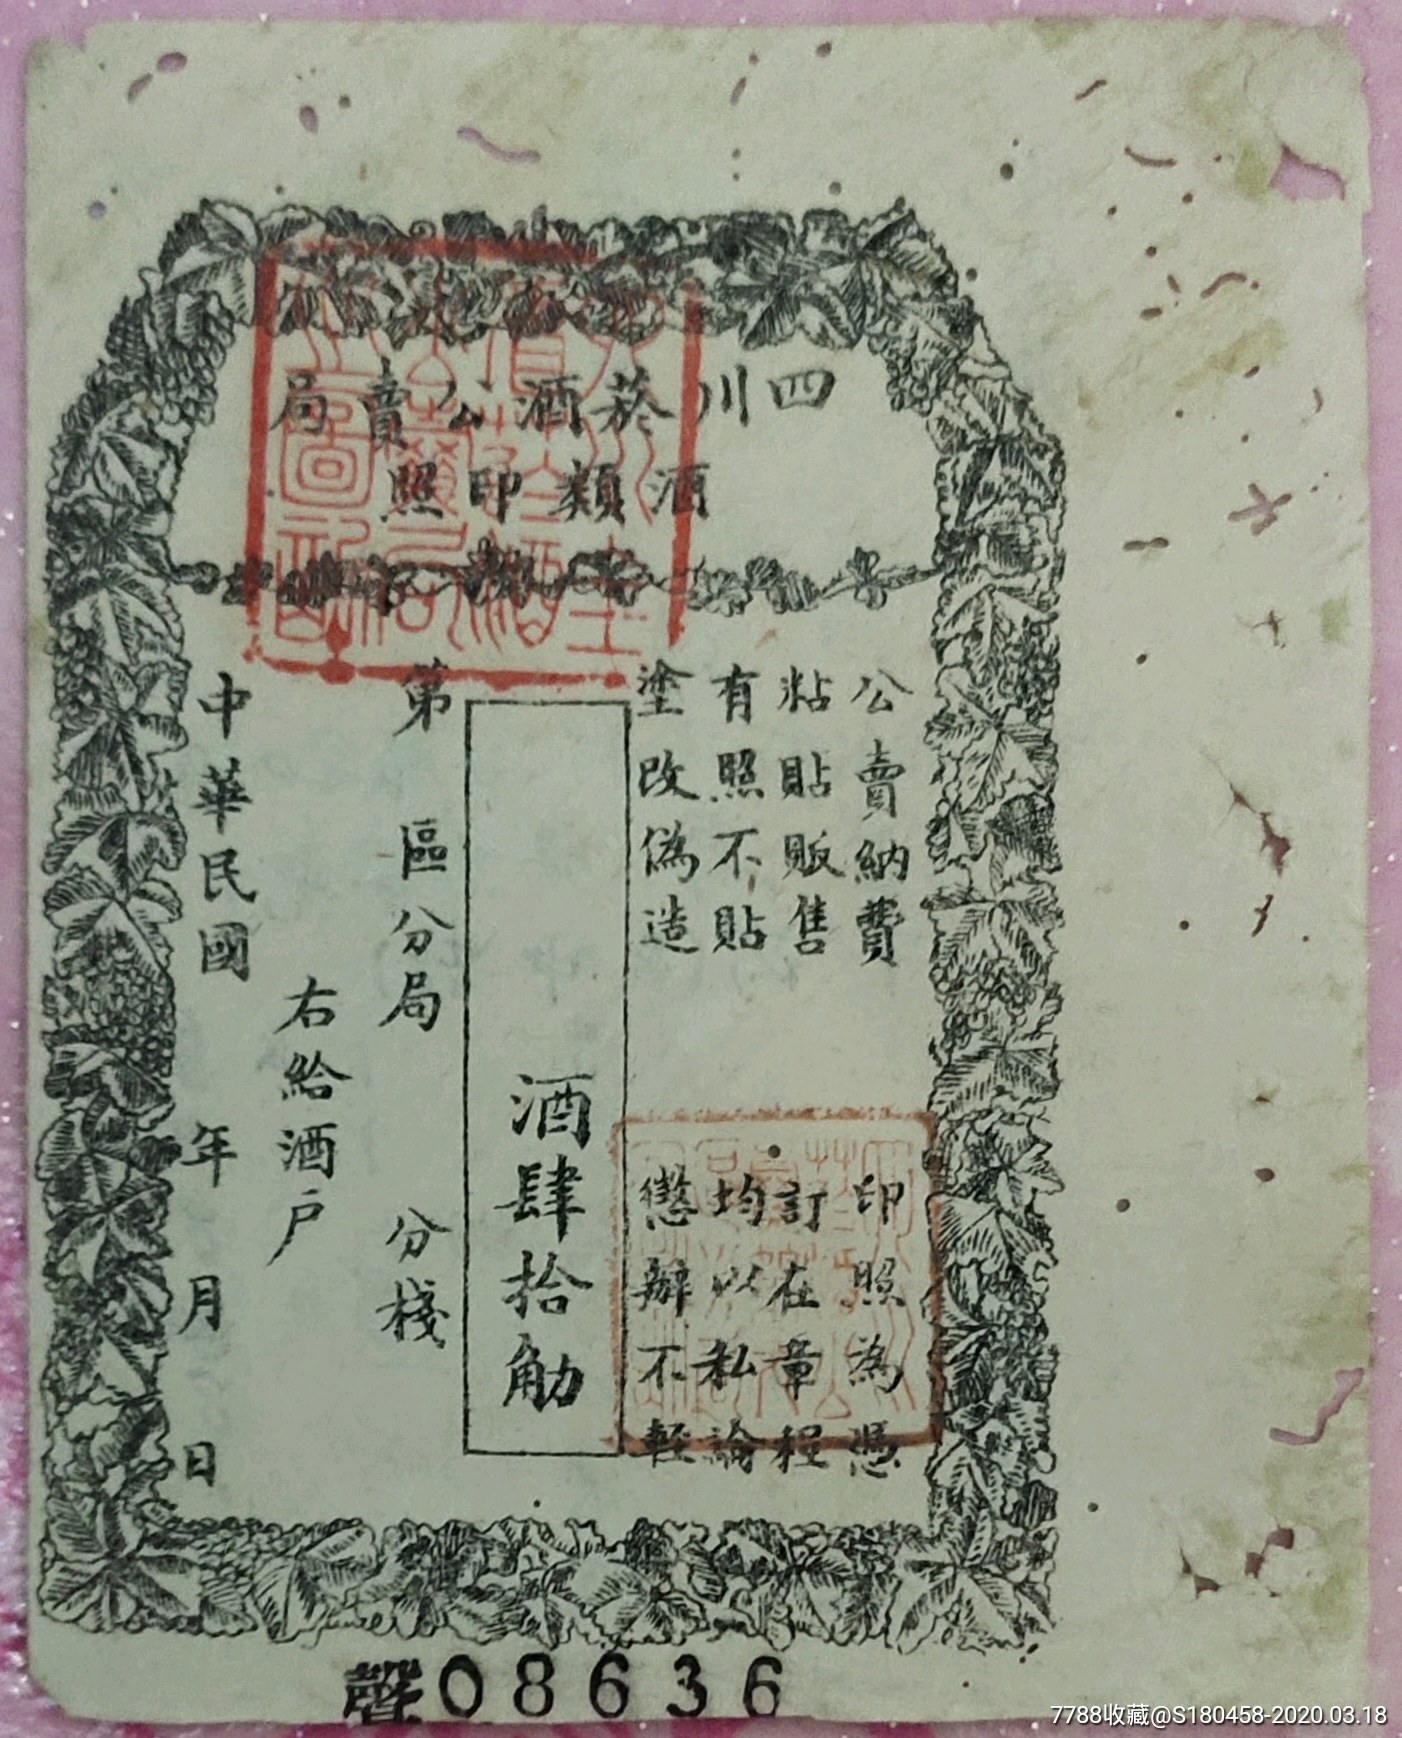 四川菸酒公賣局
酒類印照
公賣納費 印照為憑
粘貼販售 訂在章程
有照不貼 均以私論
塗改偽造 懲辦不輕
酒肆拾觔
第 區分局 分棧
右給酒户
中華民國 年 月 日
聲08636
7788收藏@S180458-2020.03.18